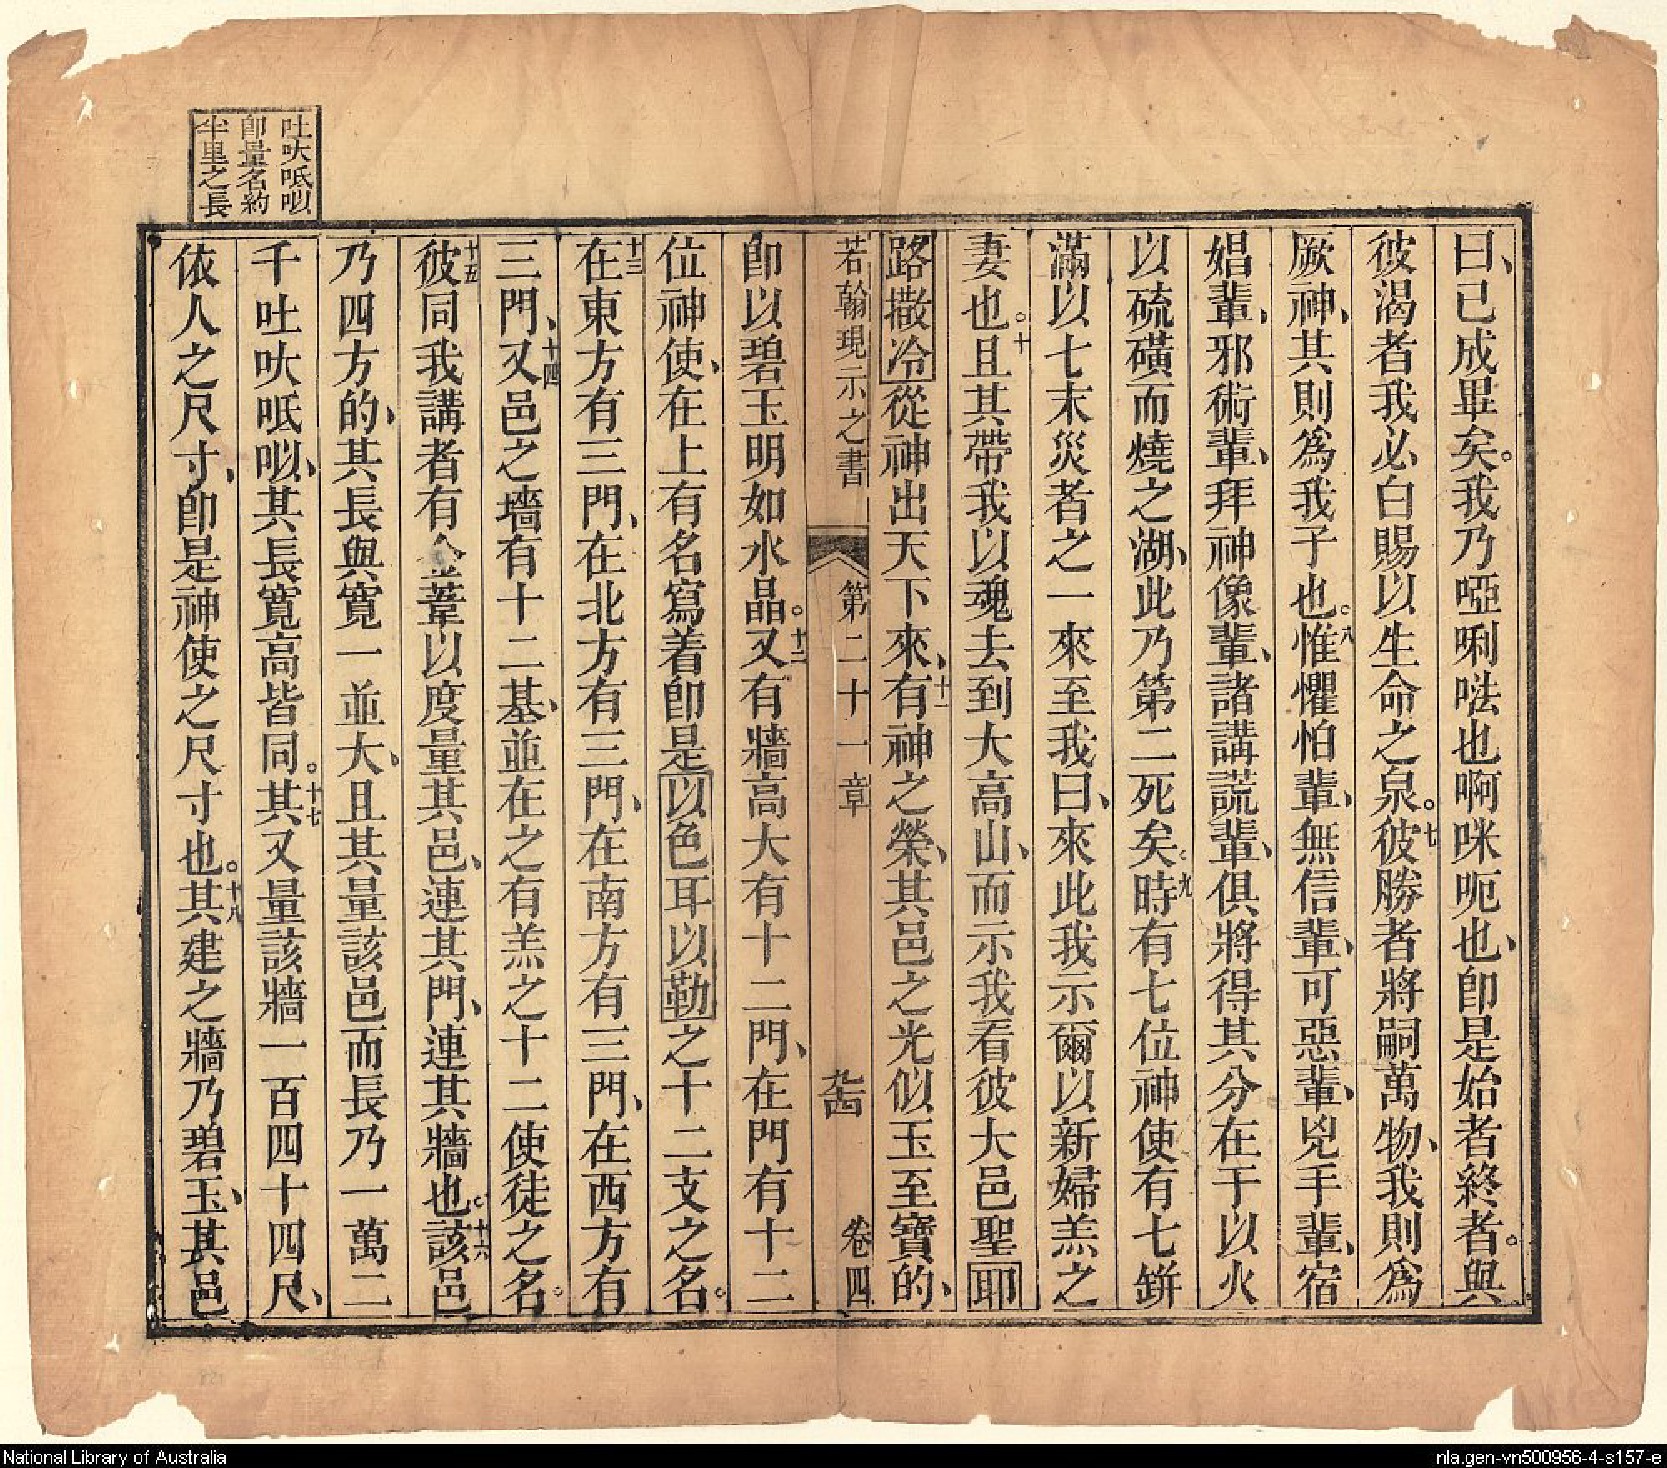 曰、已成畢矣。我乃啞唎㗶也啊咪呃也、卽是始者終者。與
彼渴者我必白賜以生命之泉。七彼勝者將嗣萬物、我則爲
厥神、其則爲我子也。八惟懼怕輩、無信輩、可惡輩、兇手輩、宿
娼輩、邪術輩、拜神像輩、諸講謊輩、俱將得其分在于以火
以硫磺而燒之湖、此乃第二死矣。九時有七位神使有七缾
滿以七末災者之一來至我曰、來此我示爾以新婦羔之
妻也。十且其帶我以魂去到大高山、而示我看彼大邑聖耶
路撒冷從神出天下來、十一有神之榮、其邑之光似玉至寶的、
若翰現示之書
第二十一章
卷四
卽以碧玉明如水晶。十二又有牆高大有十二門、在門有十二
位神使、在上有名寫着卽是以色耳以勒之十二支之名。
十三在東方有三門、在北方有三門、在南方有三門、在西方有
三門、十四又邑之墻有十二基、並在之有羔之十二使徒之名。
十五彼同我講者有金葦以度量其邑、連其門、連其牆也。十六該邑
乃四方的、其長與寬一並大、且其量該邑而長乃一萬二
千吐吠呧㕥、其長寬高皆同。十七其又量該牆一百四十四尺、
依人之尺寸、卽是神使之尺寸也。十八其建之牆乃碧玉、其邑
吐吠呧㕥
卽量名約
半里之長
National Library of Australia
nla.gen-vn500956-4-s157-e